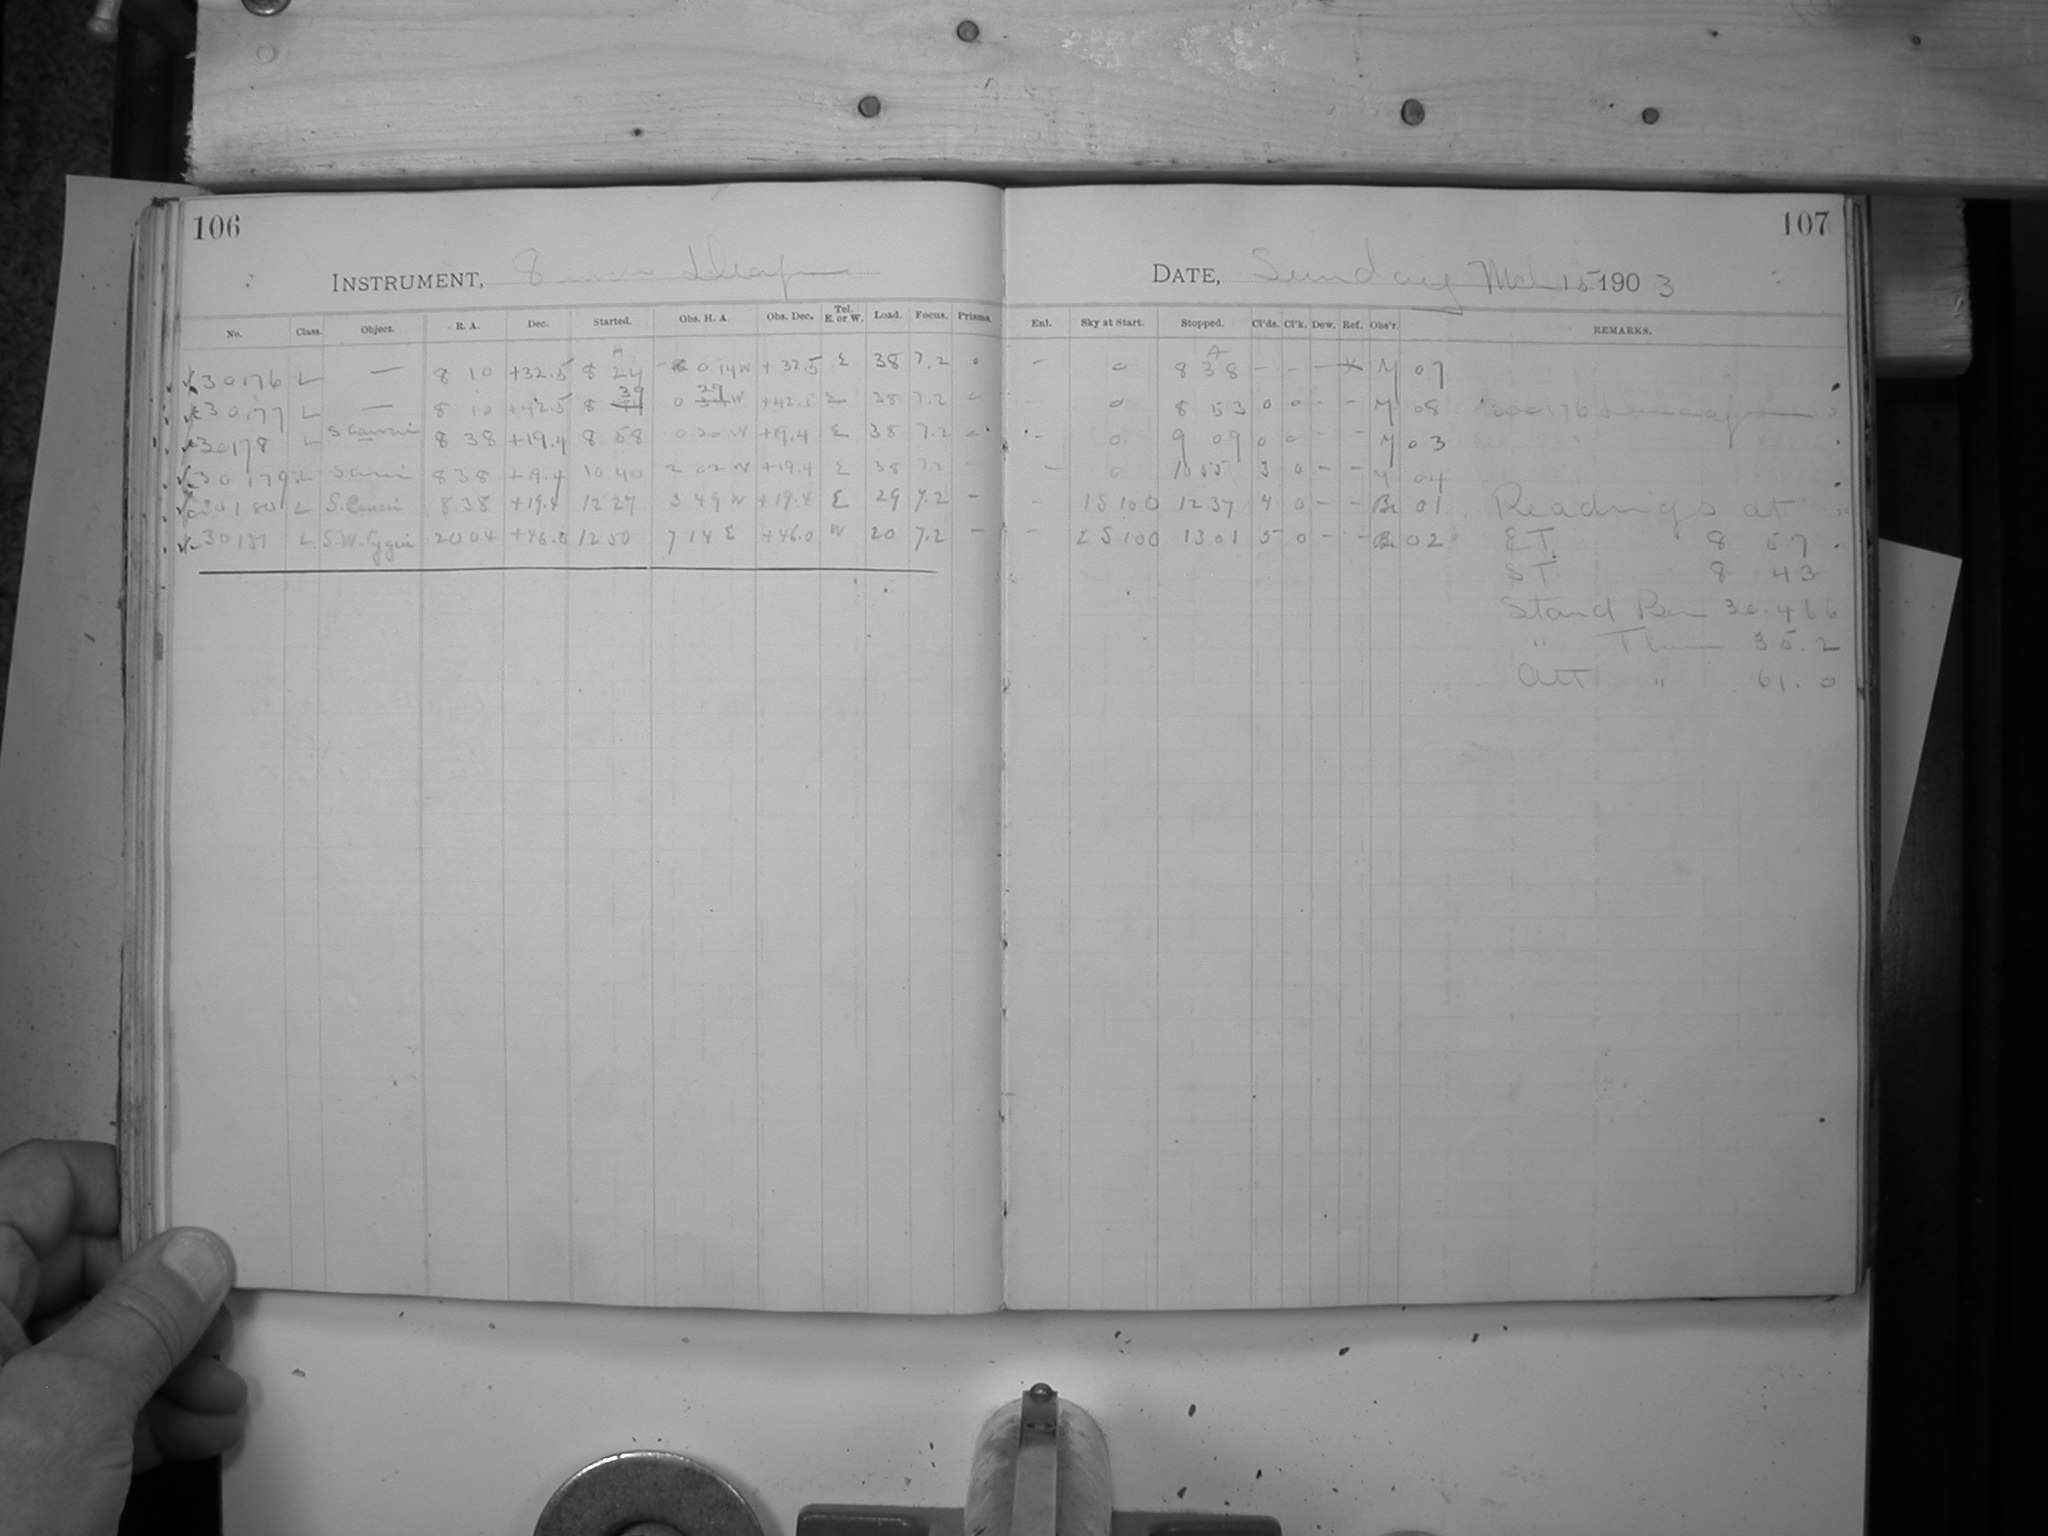 106
107
INSTRUMENT, 8 inch Draper
DATE, Sunday Mch 15 190 3
No. Class. Object. R. A. Dec. Started. Obs. H. A. Obs. Dec. Tel. E. or W. Load. Focus. Prisms. Enl. Sky at Start. Stopped. Cl'ds. Cl'k. Dew. Ref. Obs'r. REMARKS.
30176 L — 8 10 +32.5 8 24 0 14 W +32.5 E 38 7.2 0 - 0 8 38 - - - X M 07
30177 L — 8 10 +42.5 8 39 0 29 W +42.5 E 38 7.2 - - 0 8 53 0 0 - - M 08 300176
30178 L S Cancri 8 38 +19.4 8 58 0 20 W +19.4 E 38 7.2 - - 0 9 09 0 0 - - M 03
30179 L S Cancri 8 38 +19.4 10 40 2 02 W +19.4 E 38 7.2 - - 0 10 55 3 0 - - M 04
30180 L S. Cancri 8 38 +19.4 12 27 3 49 W +19.4 E 29 7.2 - - 1S 100 12 37 4 0 - - Br 01 Readings at
30181 L S.W. Cygni 20 04 +46.0 12 50 7 14 E +46.0 W 20 7.2 - - 2S 100 13 01 5 0 - - Br 02 E T. 8 57
S T. 8 43
Stand Bar 30.466
" Ther 35.2
Att " 61.0